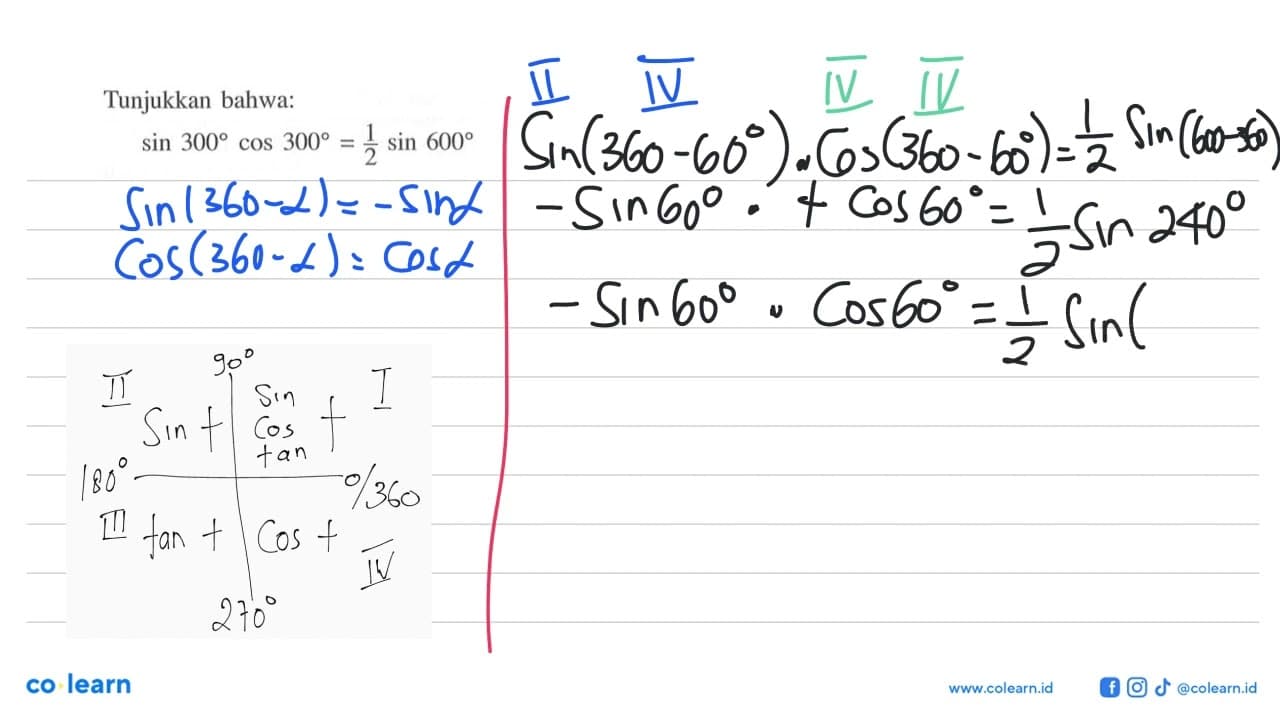 Tunjukkan bahwa:
sin 300° cos 300° = 1/2 sin 600°
Sin(360-α) = -Sinα
Cos(360-α) = Cosα
90°
II I
Sin + Sin Cos tan +
180° 0/360
III tan + Cos + IV
270°
II IV IV IV
Sin(360-60°).Cos(360-60°)=1/2 Sin(600-360)
-Sin60° . + Cos60° = 1/2 Sin 240°
-Sin60° . Cos60° = 1/2 Sin(
co learn
www.colearn.id @colearn.id